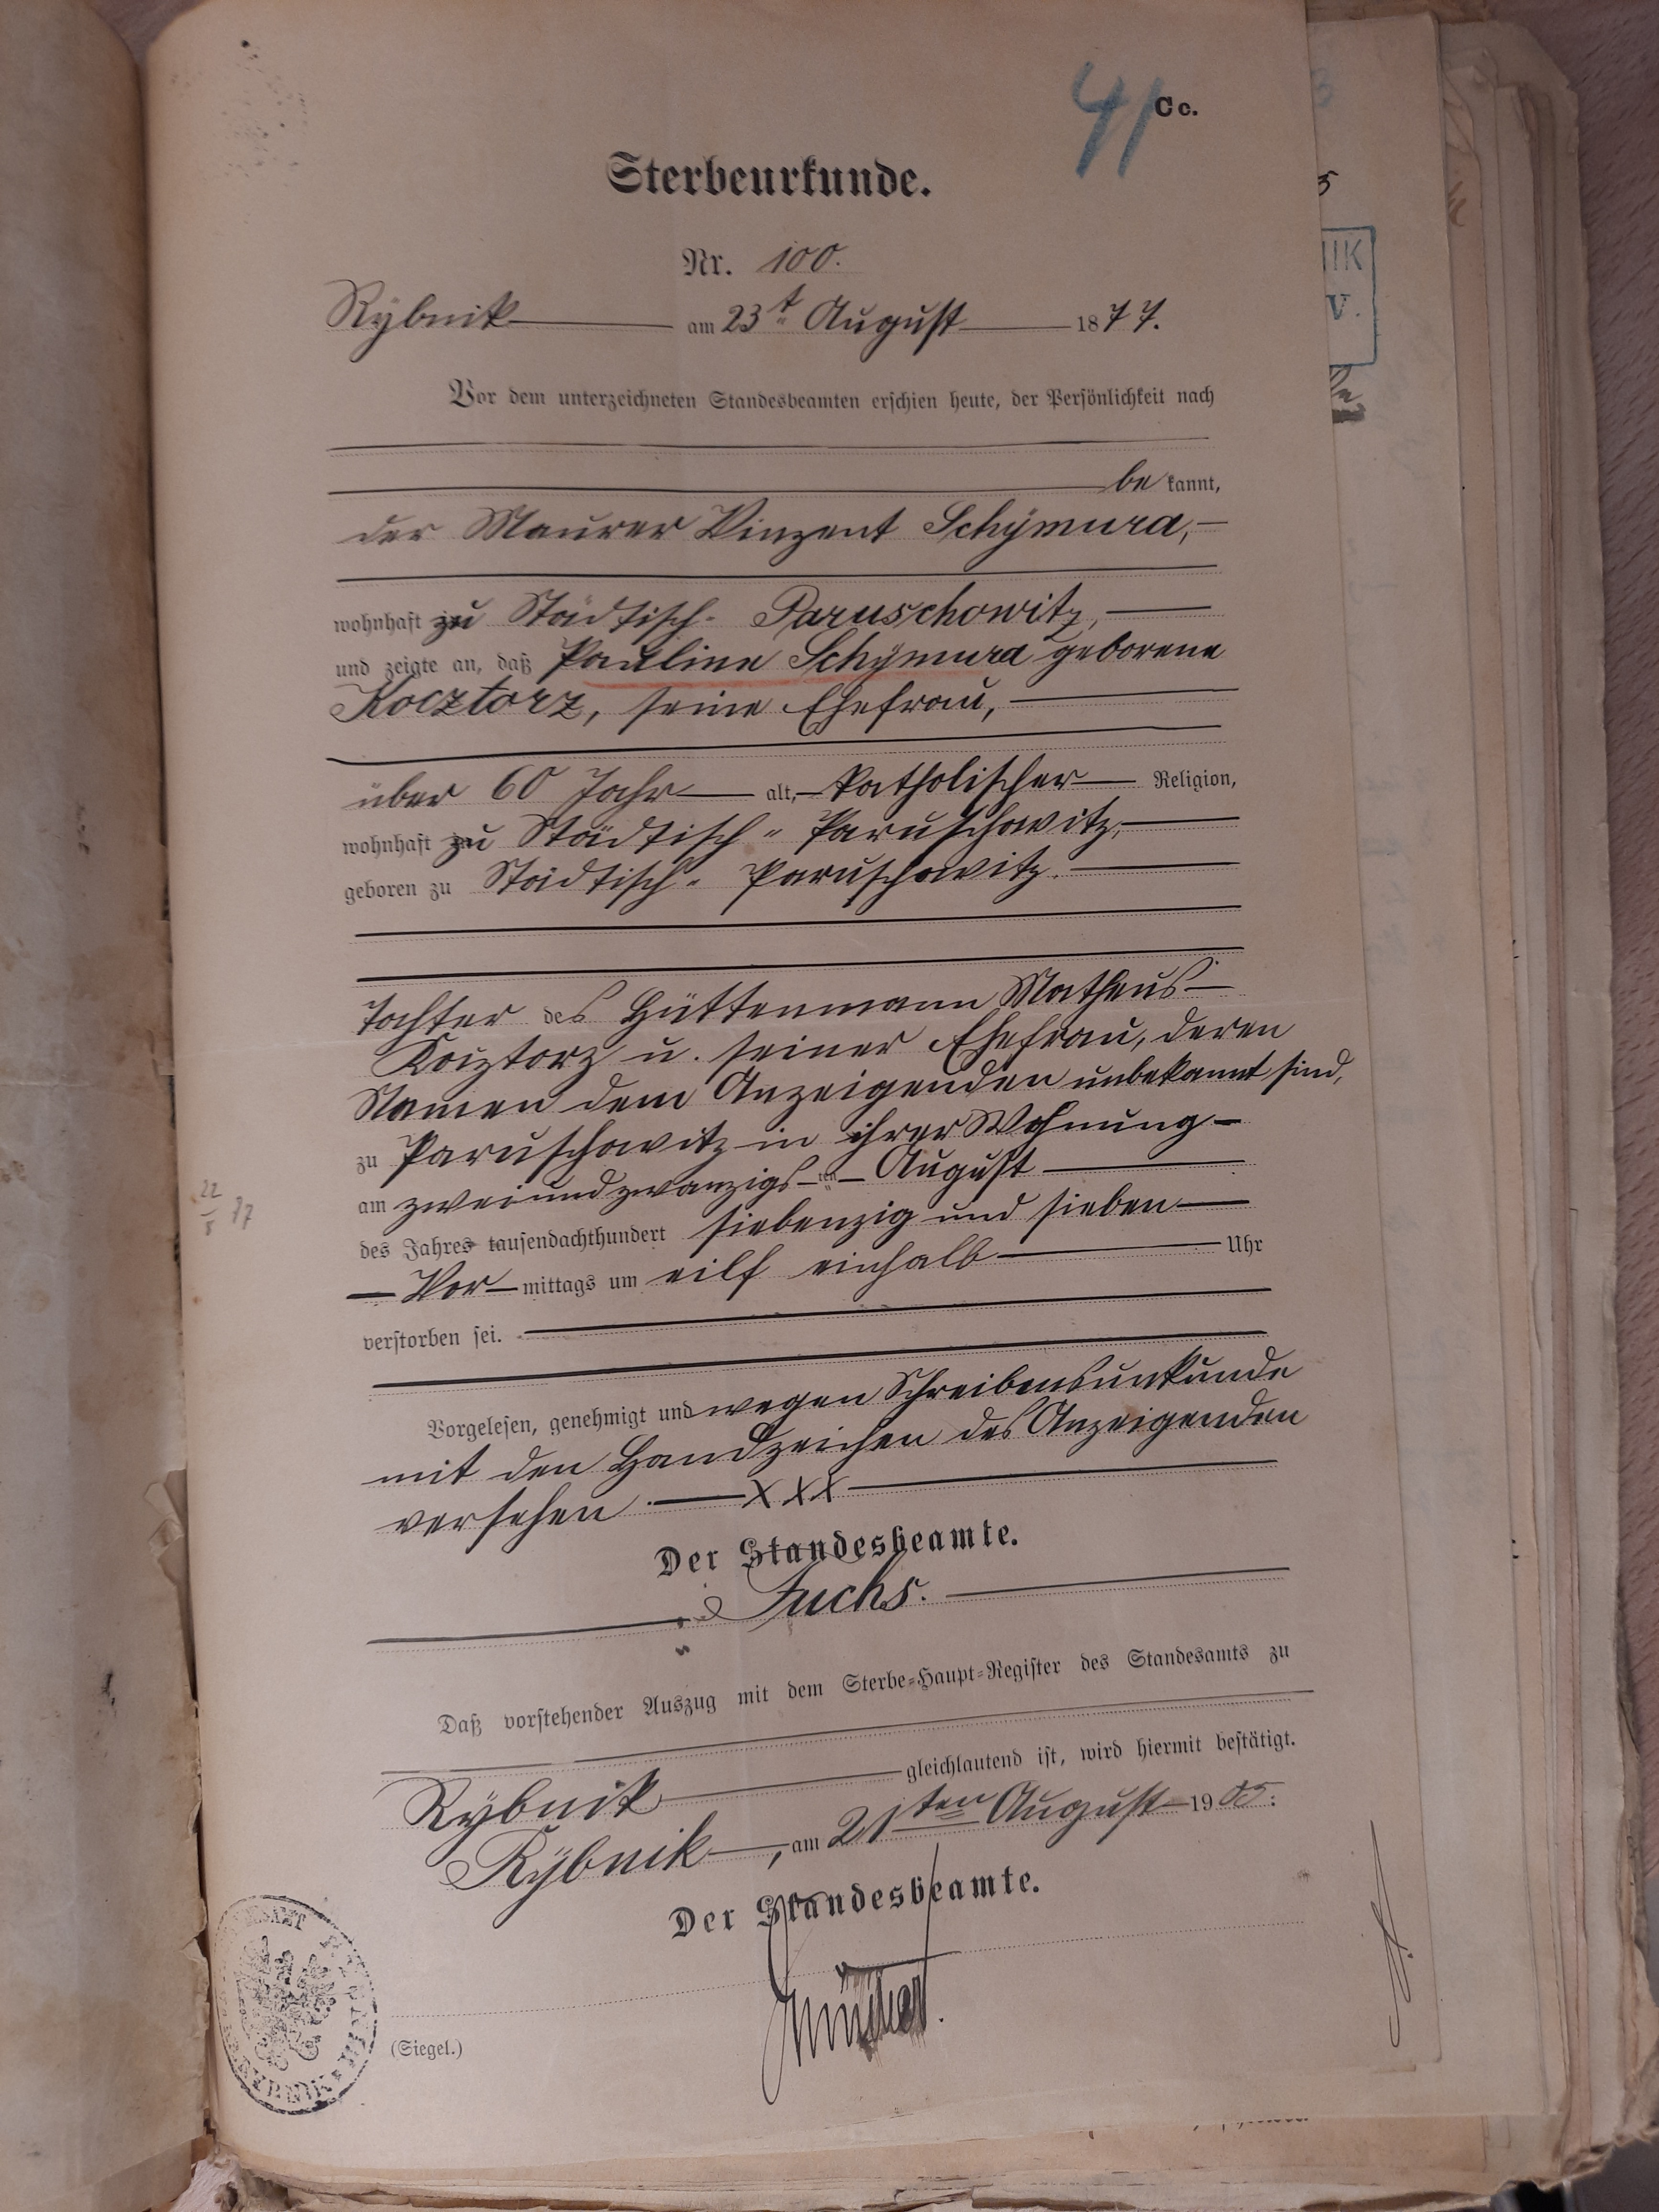 41 Cc.
Sterbeurkunde.
Nr. 100.
Rybnik am 23t August 1877.
Vor dem unterzeichneten Standesbeamten erschien heute, der Persönlichkeit nach
be kannt,
der Maurer Vinzent Schymura,
wohnhaft zu Städtisch- Paruschowitz,
und zeigte an, daß Pauline Schymura geborene
Kocztorz, seine Ehefrau,
über 60 Jahr alt, katholischer Religion,
wohnhaft zu Städtisch- Paruschowitz,
geboren zu Städtisch- Paruschowitz.
Tochter des Hüttenmann Matheus
Koiztorz u. seiner Ehefrau, deren
Namen dem Anzeigenden unbekannt sind,
zu Paruschowitz in ihrer Wohnung
am zweiundzwanzigs ten August
des Jahres tausendachthundert siebenzig und sieben
Vor mittags um eilf einhalb Uhr
verstorben sei.
Vorgelesen, genehmigt und wegen Schreibensunkunde
mit den Handzeichen des Anzeigenden
versehen. XXX
Der Standesbeamte.
Fuchs.
Daß vorstehender Auszug mit dem Sterbe-Haupt-Register des Standesamts zu
Rybnik gleichlautend ist, wird hiermit bestätigt.
Rybnik, am 21ten August 1905.
Der Standesbeamte.
(Siegel.)